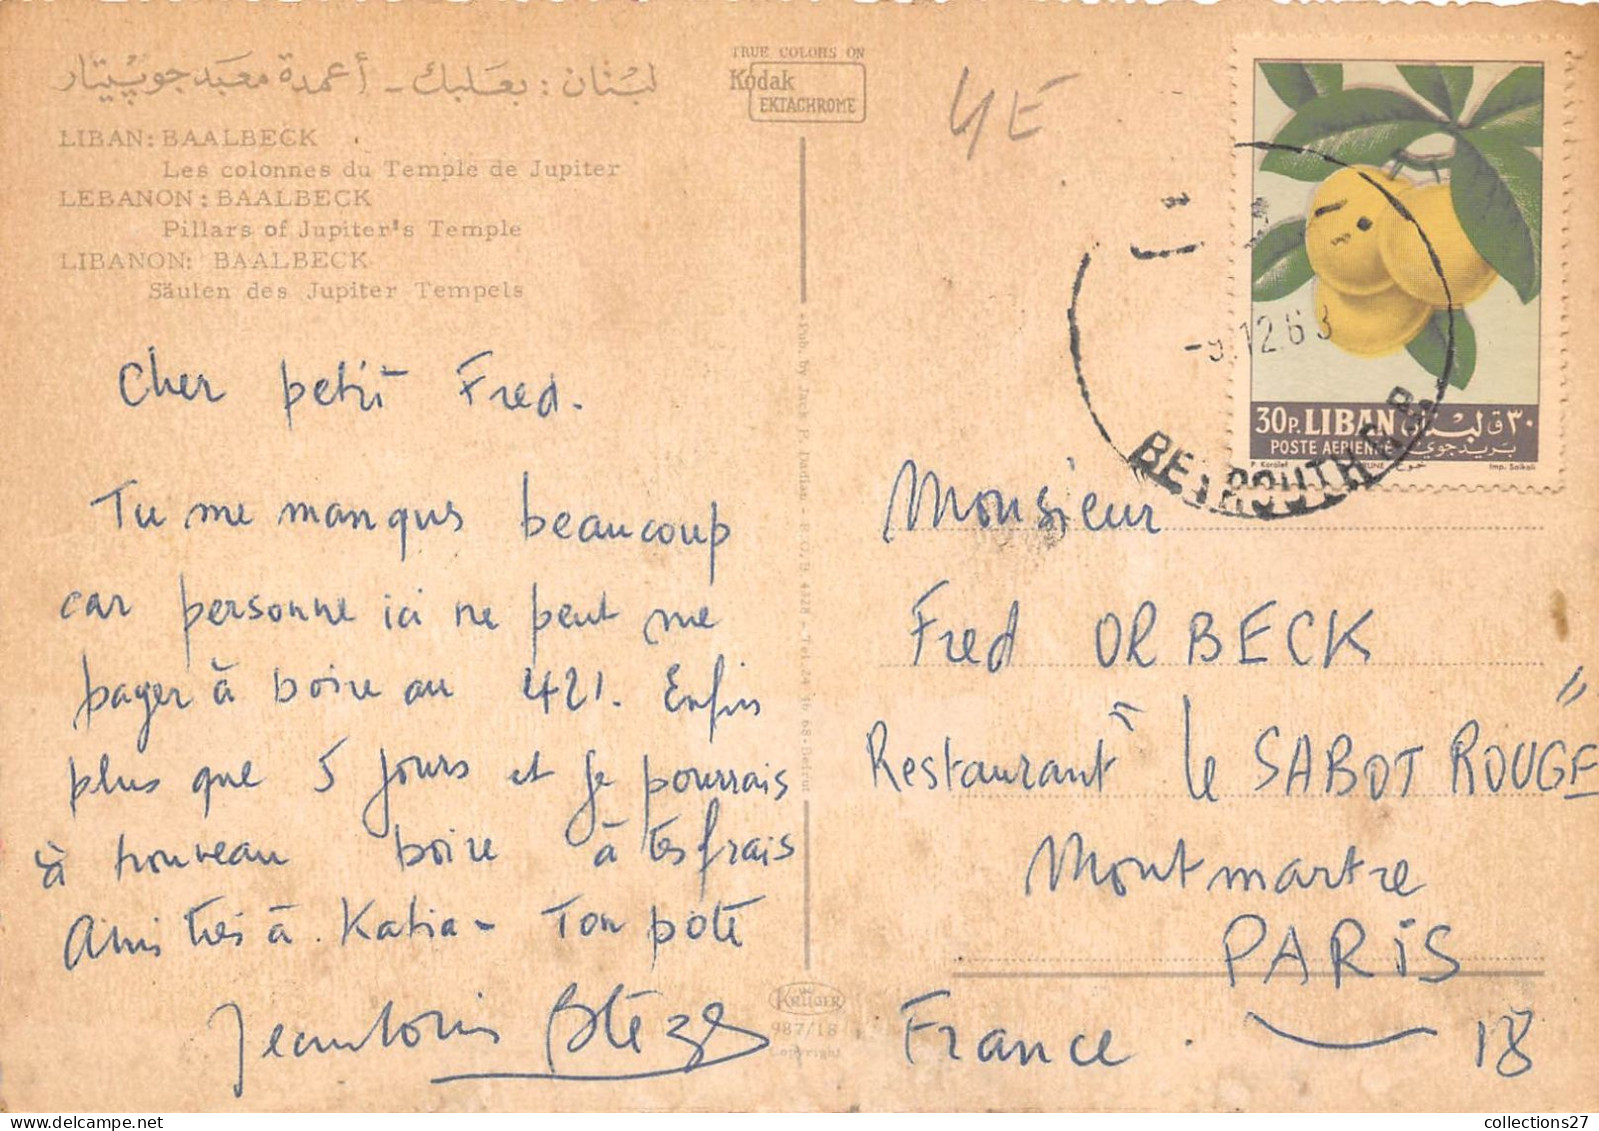 لبنان : بعلبك - أعمدة معبد جوبيتار
LIBAN: BAALBECK
Les colonnes du Temple de Jupiter
LEBANON: BAALBECK
Pillars of Jupiter's Temple
LIBANON: BAALBECK
Säulen des Jupiter Tempels
TRUE COLORS ON
Kodak
EKTACHROME
4E
Cher petit Fred.
Tu me manques beaucoup
car personne ici ne peut me
payer à boire au 421. Enfin
plus que 5 jours et je pourrais
à nouveau boire à tes frais
Amitiés à Katia - Ton pote
Jean Louis
Pub. by Jack P. Dadian - P.O.B 4328 - Tel. 24 16 68 - Beirut
KRÜGER
987/18
Copyright
-9.12.63
BEYROUTH R.P.
30P. LIBAN لبنان ٣٠ق
POSTE AERIENNE بريد جوي
P. Koroleff
Imp. Saikali
Monsieur
Fred ORBECK
Restaurant "le SABOT ROUGE"
Montmartre
PARIS
France. 18
collections27